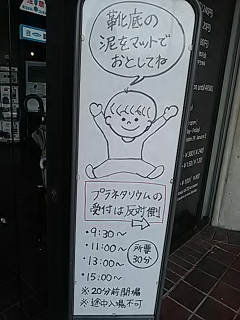 靴底の
泥をマットで
おとしてね
プラネタリウムの
受付は反対側
・9:30～
・11:00～
・13:00～
・15:00～
所要
30分
※20分前開場
※途中入場不可